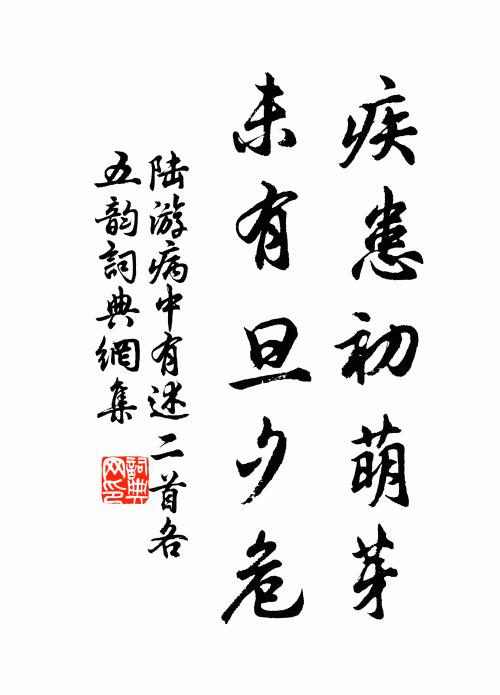 疾患初萌芽
未有旦夕危
陆游病中有述二首各
五韵詞典網集
詞典
网印